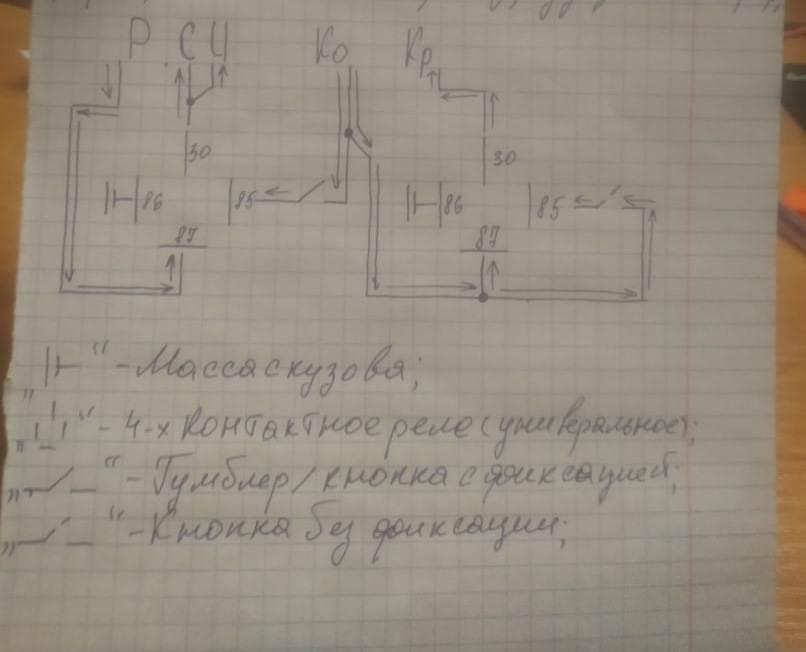 Р С Ч Ко Кр
30 30
86 85 86 85
87 87
„ “ - Масса с кузова;
„ “ - 4-х контактное реле (универальное);
„ “ - Тумблер/кнопка с фиксацией;
„ “ - Кнопка без фиксации;